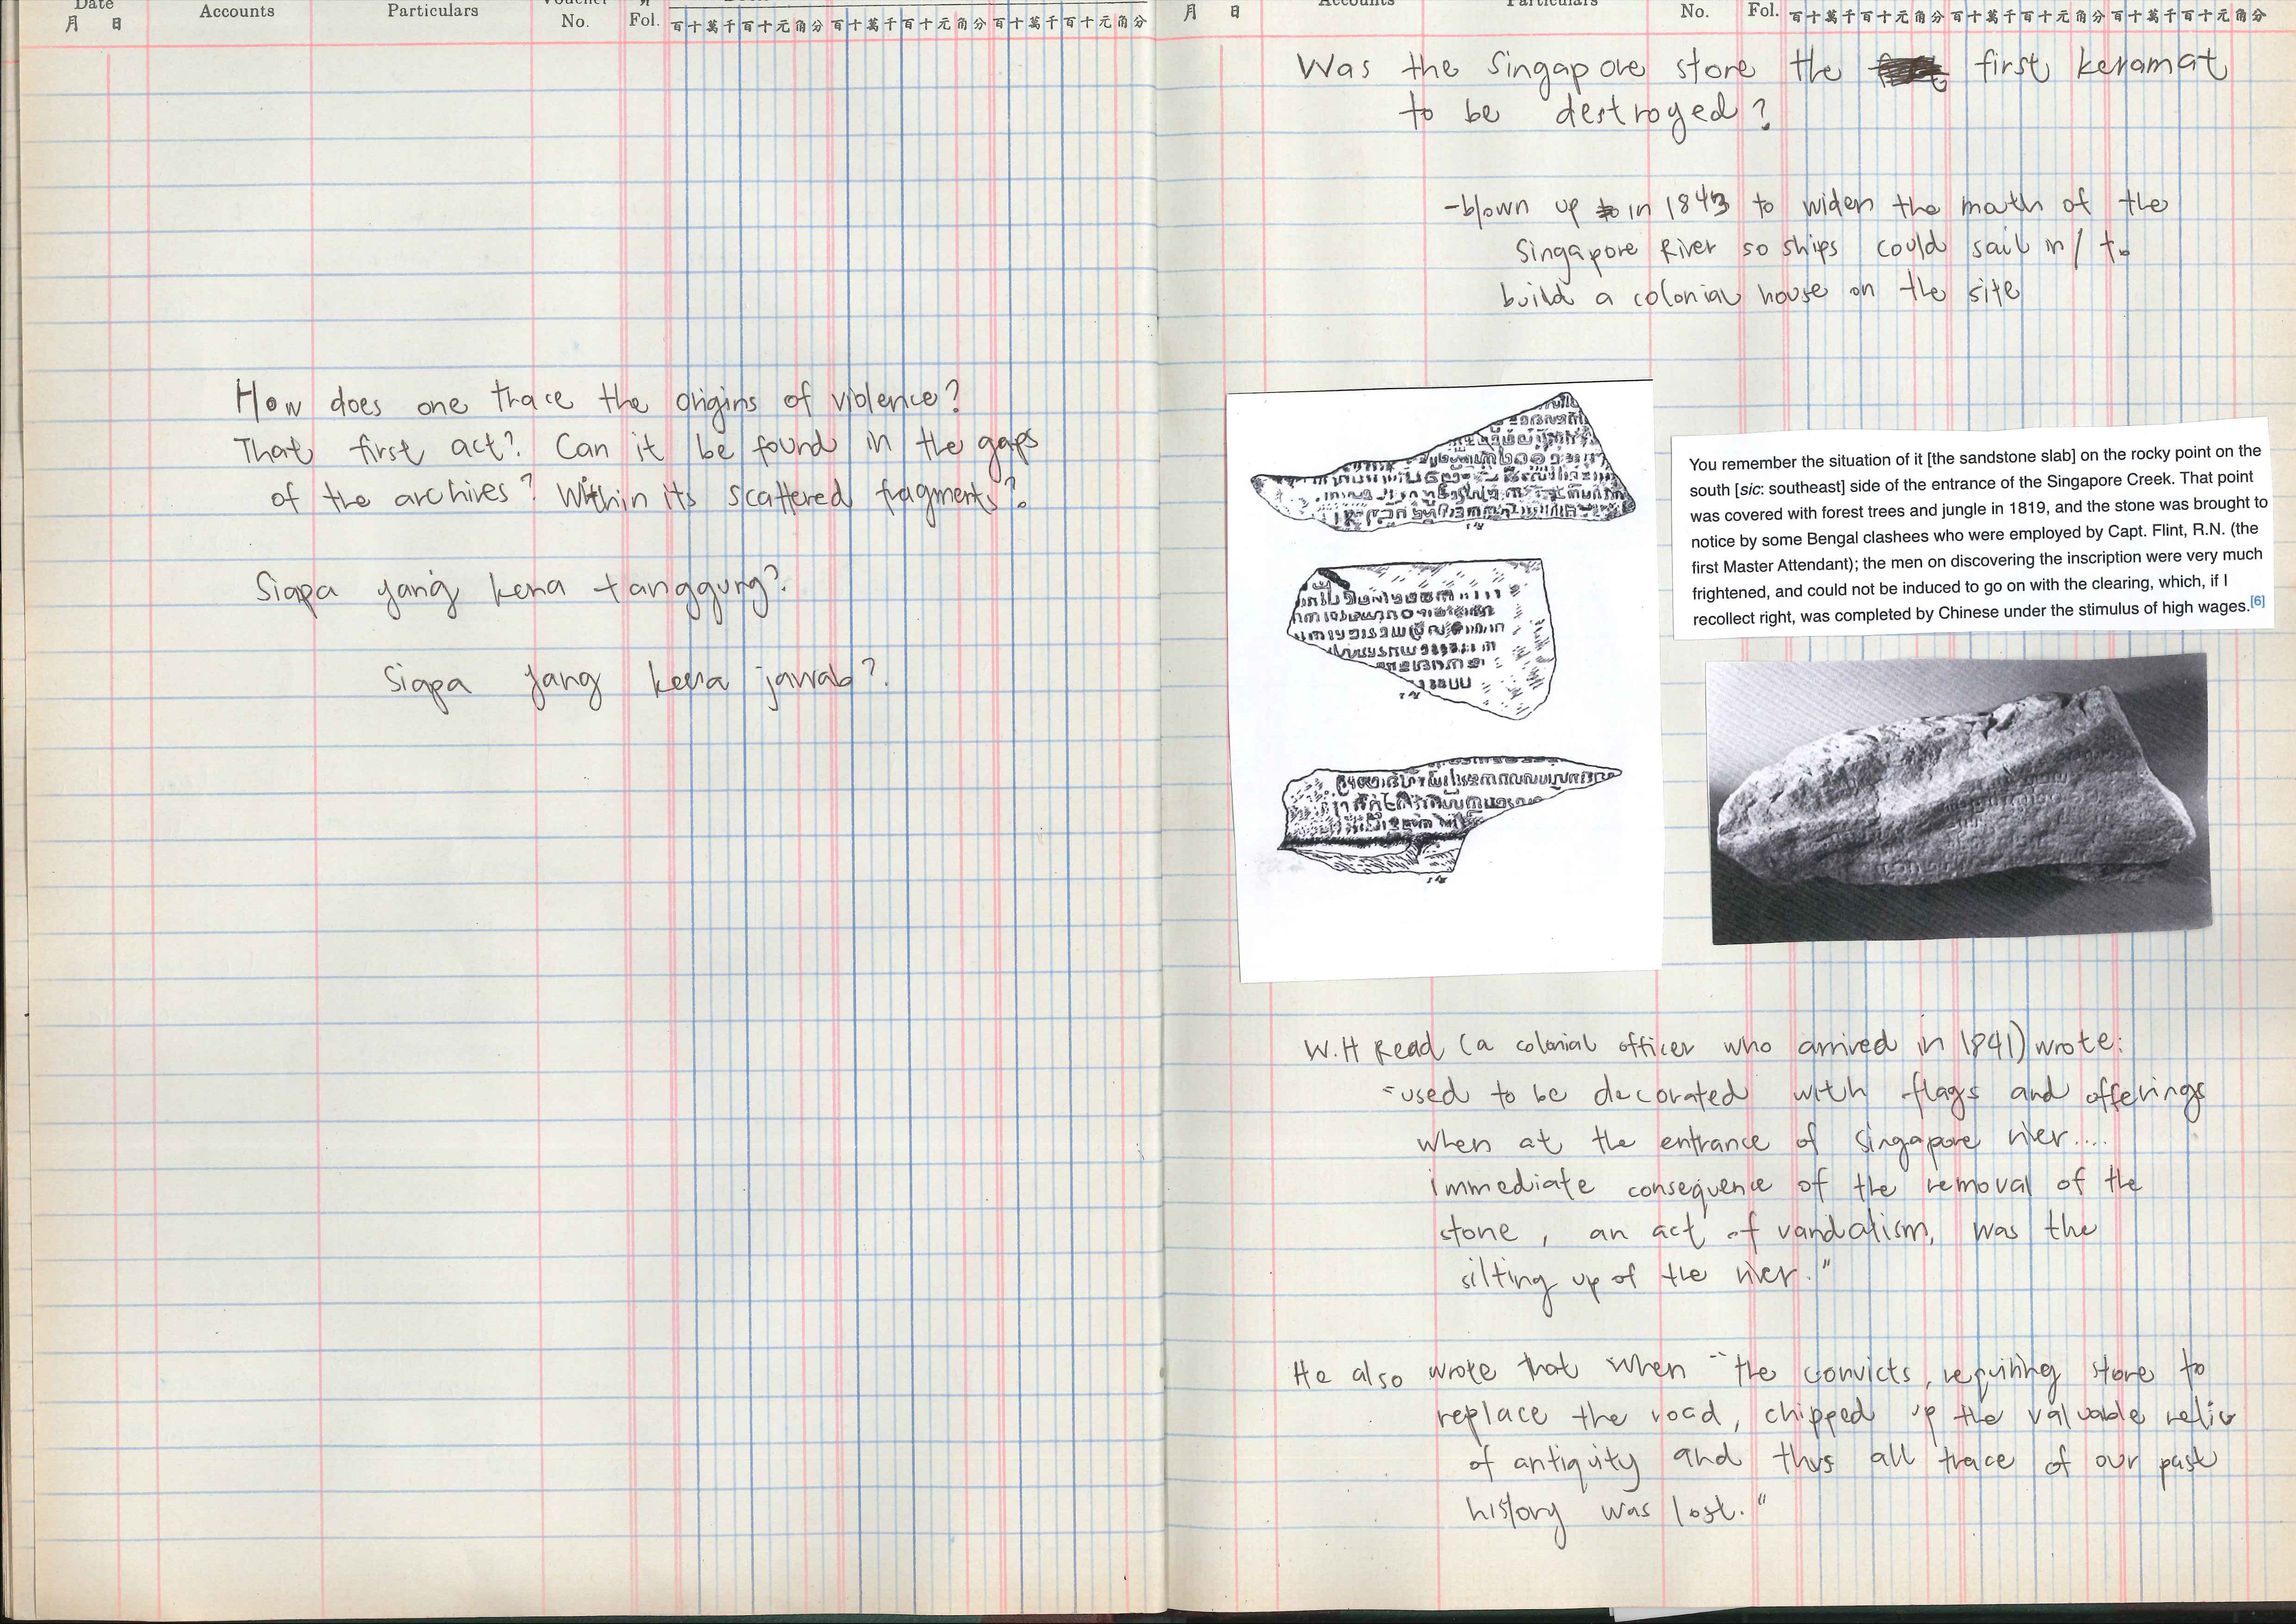 Date
月 日
Accounts
Particulars
Voucher
No.
Fol.
百十萬千百十元角分百十萬千百十元角分百十萬千百十元角分
How does one trace the origins of violence?
That first act? Can it be found in the gaps
of the archives? Within its scattered fragments?
Siapa yang kena tanggung?
Siapa yang kena jawab?
月 日
Accounts
Particulars
No.
Fol.
百十萬千百十元角分百十萬千百十元角分百十萬千百十元角分
Was the Singapore stone the first keramat
to be destroyed?
-blown up in 1843 to widen the mouth of the
Singapore River so ships could sail in / to
build a colonial house on the site
You remember the situation of it [the sandstone slab] on the rocky point on the
south [sic: southeast] side of the entrance of the Singapore Creek. That point
was covered with forest trees and jungle in 1819, and the stone was brought to
notice by some Bengal clashees who were employed by Capt. Flint, R.N. (the
first Master Attendant); the men on discovering the inscription were very much
frightened, and could not be induced to go on with the clearing, which, if I
recollect right, was completed by Chinese under the stimulus of high wages.[6]
W.H Read (a colonial officer who arrived in 1841) wrote:
"used to be decorated with flags and offerings
when at the entrance of Singapore river....
immediate consequence of the removal of the
stone, an act of vandalism, was the
silting up of the river."
He also wrote that when "the convicts, requiring stone to
replace the road, chipped up the valuable relic
of antiquity and thus all trace of our past
history was lost."